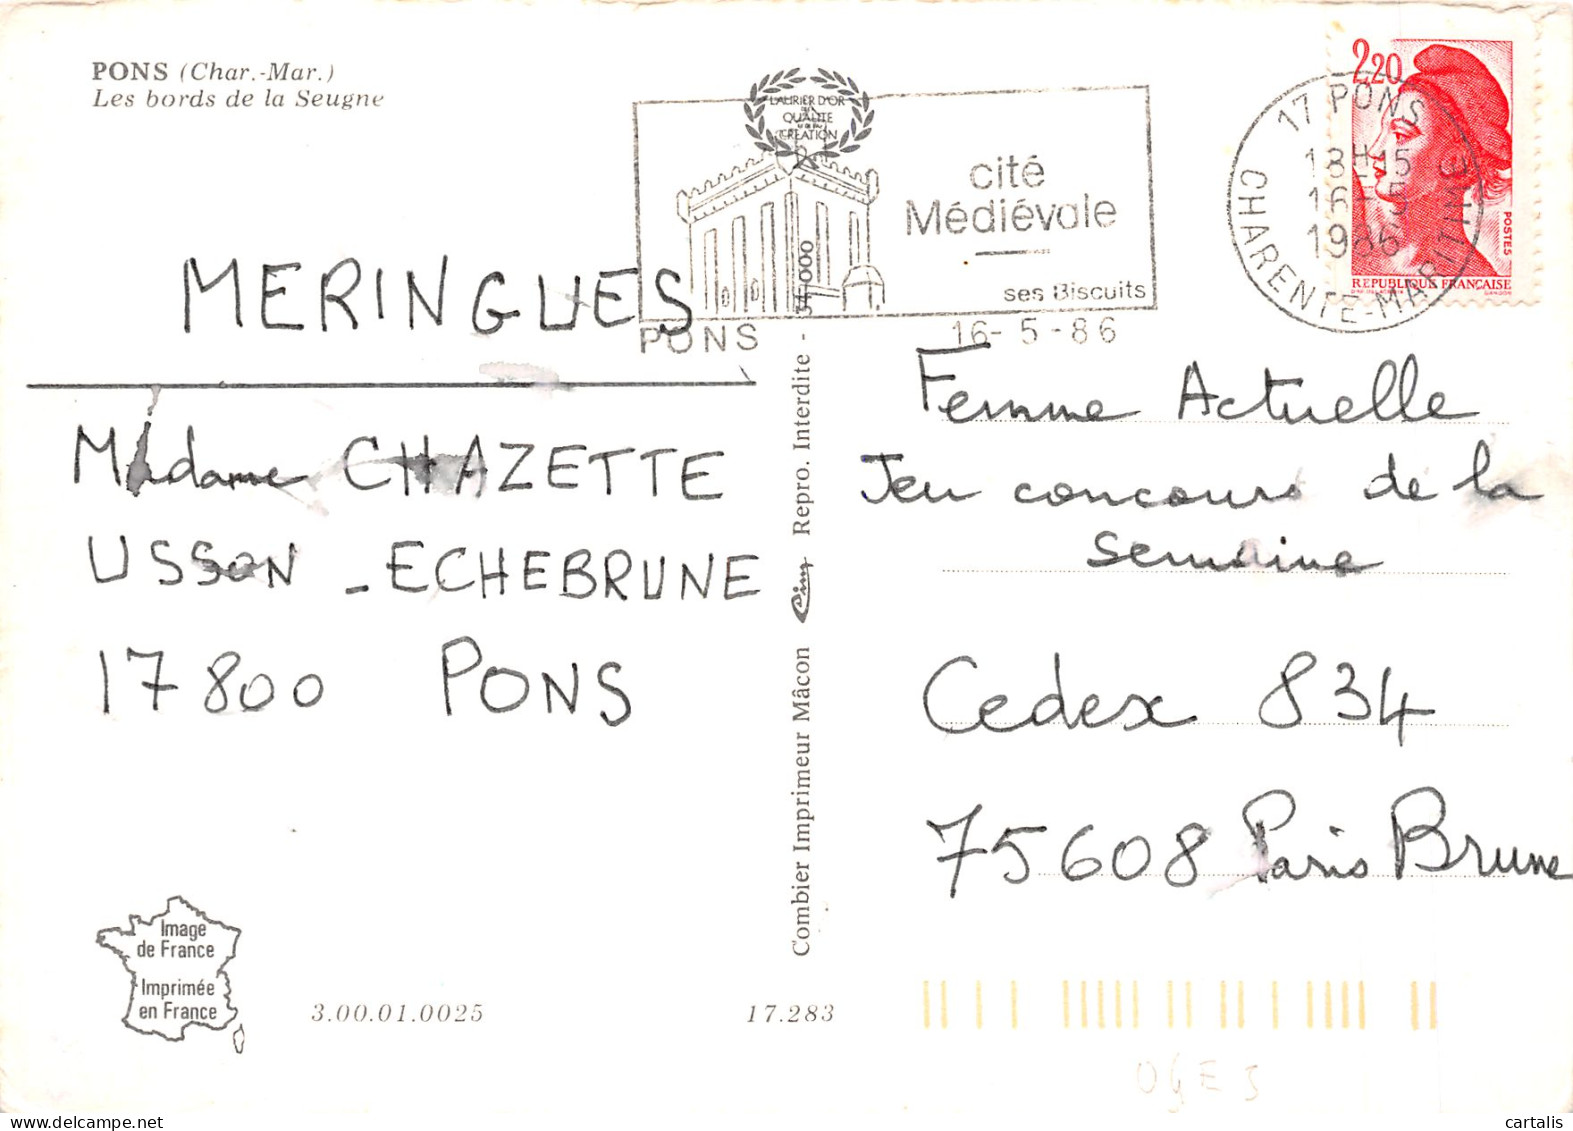 PONS (Char.-Mar.)
Les bords de la Seugne
LAURIER D'OR
QUALITE
CREATION
cité
Médiévale
ses Biscuits
PONS
16-5-86
17 PONS
18H15
16-5
1986
CHARENTE-MARITIME
2,20
POSTES
REPUBLIQUE FRANÇAISE
MERINGUES
Madame CHAZETTE
USSON - ECHEBRUNE
17800 PONS
Femme Actuelle
Jeu concours de la
semaine
Cedex 834
75608 Paris Brune
Combier Imprimeur Mâcon Cim Repro. Interdite - 34 000
Image
de France
Imprimée
en France
3.00.01.0025
17.283
cartalis
www.delcampe.net